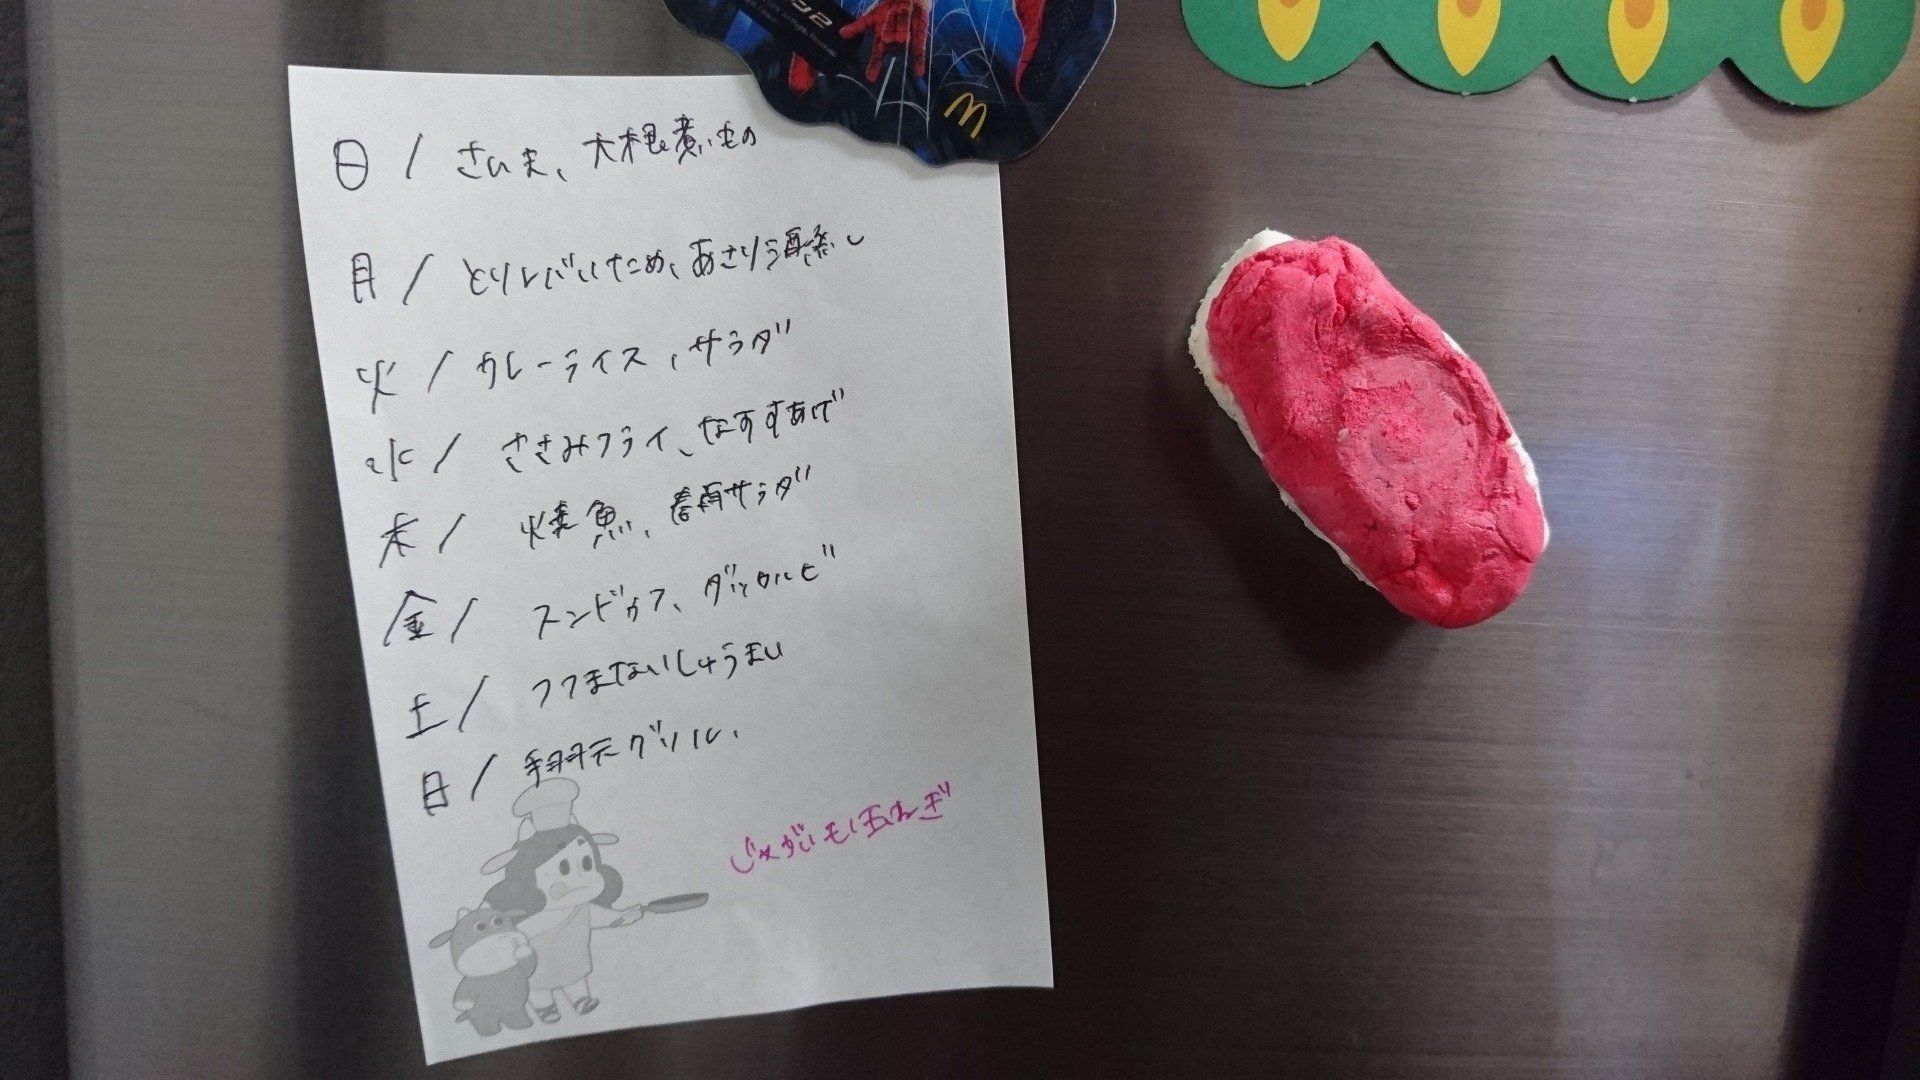 日/ さんま、大根煮もの
月/ とりレバいため、あさり酒蒸し
火/ カレーライス、サラダ
水/ ささみフライ、なすすあげ
木/ 焼魚、春雨サラダ
金/ スンドゥブ、ダッカルビ
土/ つつまないしゅうまい
日/ 手羽元グリル、
じゃがいも 玉ねぎ